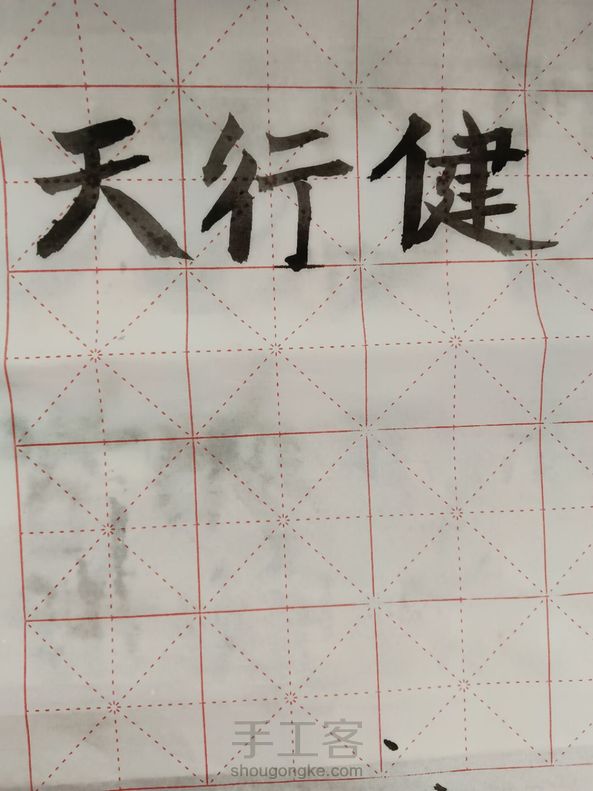 天行健
手工客
shougongke.com